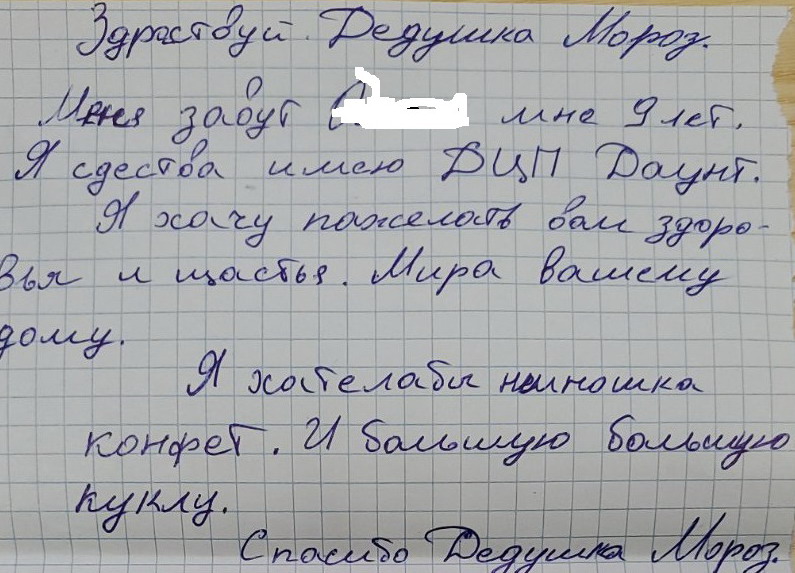 Здраствуй. Дедушка Мороз.
Меня завут мне 9 лет.
Я сдества имею ДЦП Даунт.
Я хачу пажелать вам здоро-
вья и щастья. Мира вашему
дому.
Я хателабы намношка
конфет. И большую большую
куклу.
Спасибо Дедушка Мороз.